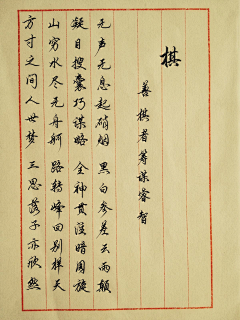 棋
善棋者筹谋睿智
无声无息起硝烟 黑白参差云雨颠
凝目搜囊巧谋略 全神贯注暗周旋
山穷水尽无舟舸 路转峰回别样天
方寸之间人世梦 三思落子亦欣然